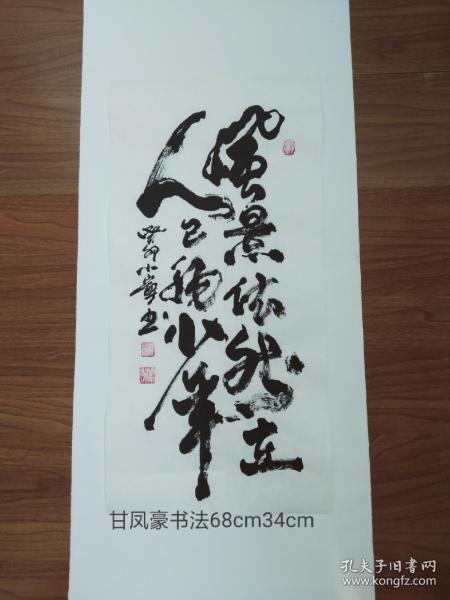 風景依然在
人已非少年
癸卯小寒书
甘凤豪书法68cm34cm
孔夫子旧书网
www.kongfz.com